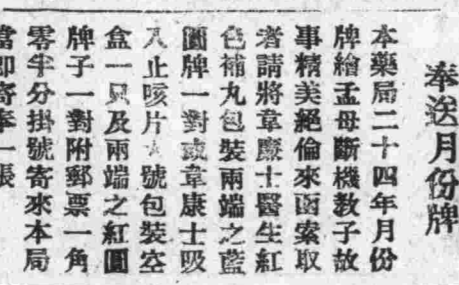 奉送月份牌
本藥局二十四年月份
牌繪孟母斷機教子故
事精美絕倫來函索取
者請將韋廉士醫生紅
色補丸包裝兩端之藍
圓牌一對或韋廉士吸
入止咳片大號包裝空
盒一只及兩端之紅圓
牌子一對附郵票一角
零半分掛號寄來本局
當即寄奉一張